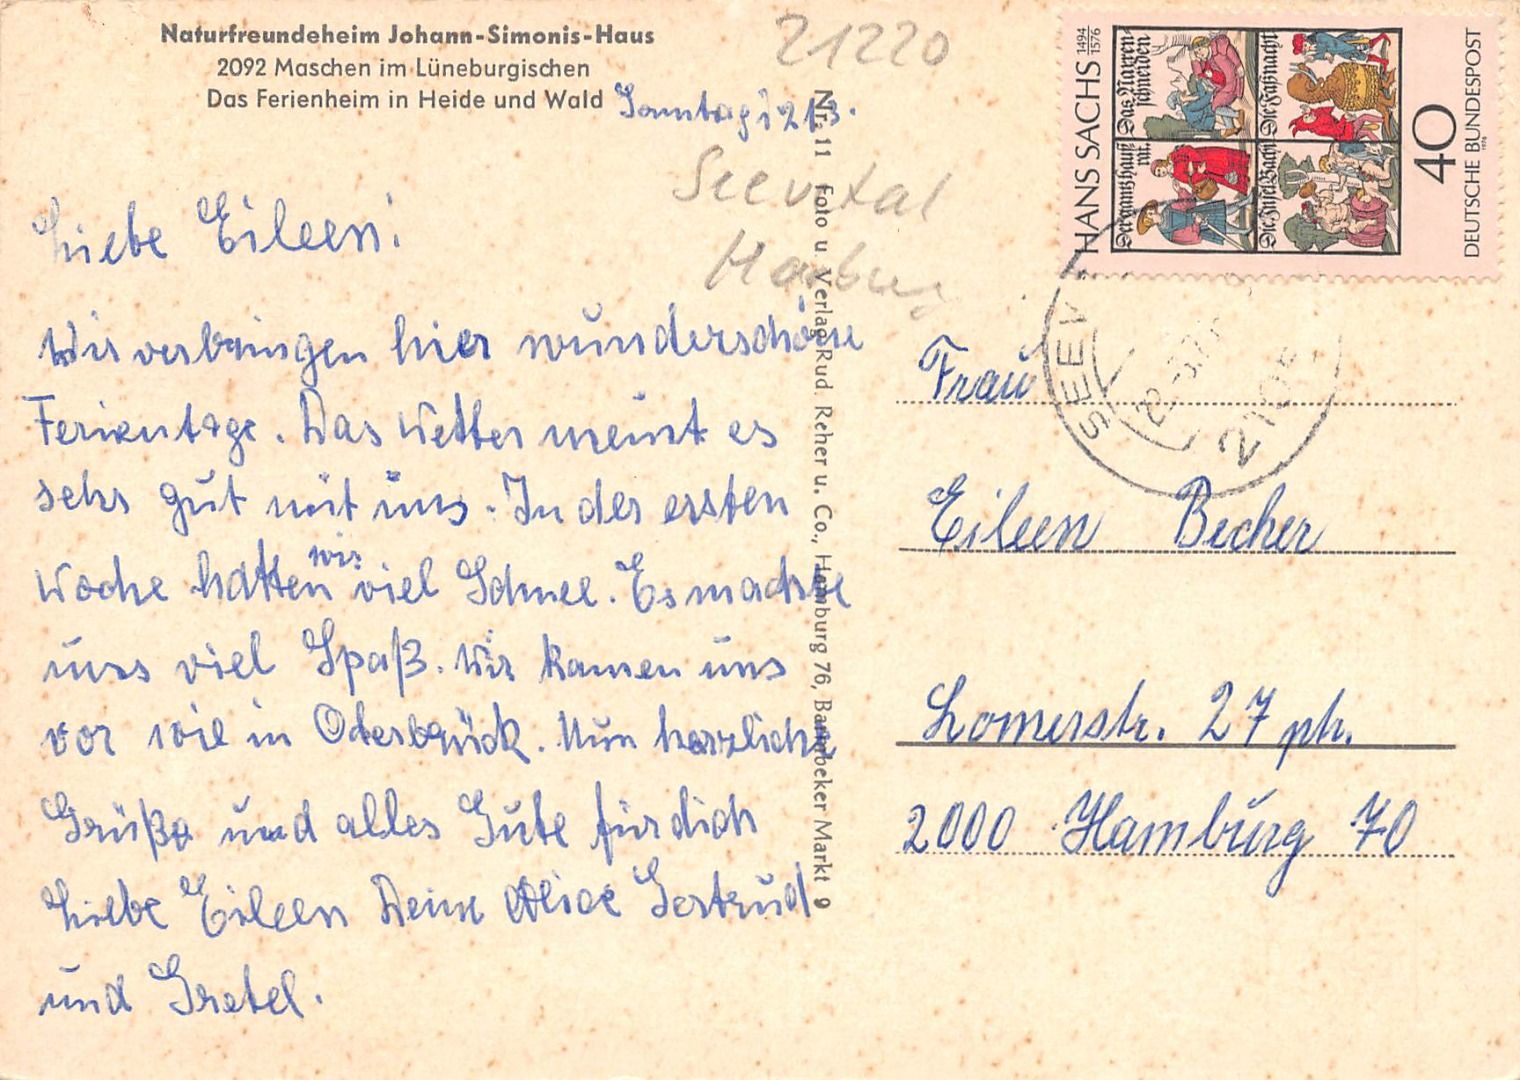 Naturfreundeheim Johann-Simonis-Haus
2092 Maschen im Lüneburgischen
Das Ferienheim in Heide und Wald
Sonntag
21220
Seevetal
Harburg
Liebe Eileen!
Wir verbringen hier wunderschöne
Ferientage. Das Wetter meint es
sehr gut mit uns. In der ersten
Woche hatten wir viel Schnee. Es machte
uns viel Spaß. Wir kamen uns
vor wie in Oderbrück. Nun herzliche
Grüße und alles Gute für dich
liebe Eileen Deine Alice Gertrud
und Gretel.
Nr. 11 Foto u. Verlag Rud. Reher u. Co., Hamburg 76, Barmbeker Markt 9
HANS SACHS 1494 1576
Das Narren-
schneiden
Die Faßnacht
Die Insel Bachi
40
DEUTSCHE BUNDESPOST
1976
SEEV
22.-3.77
2105
Frau
Eileen Becher
Lomerstr. 27 ph.
2000 Hamburg 70